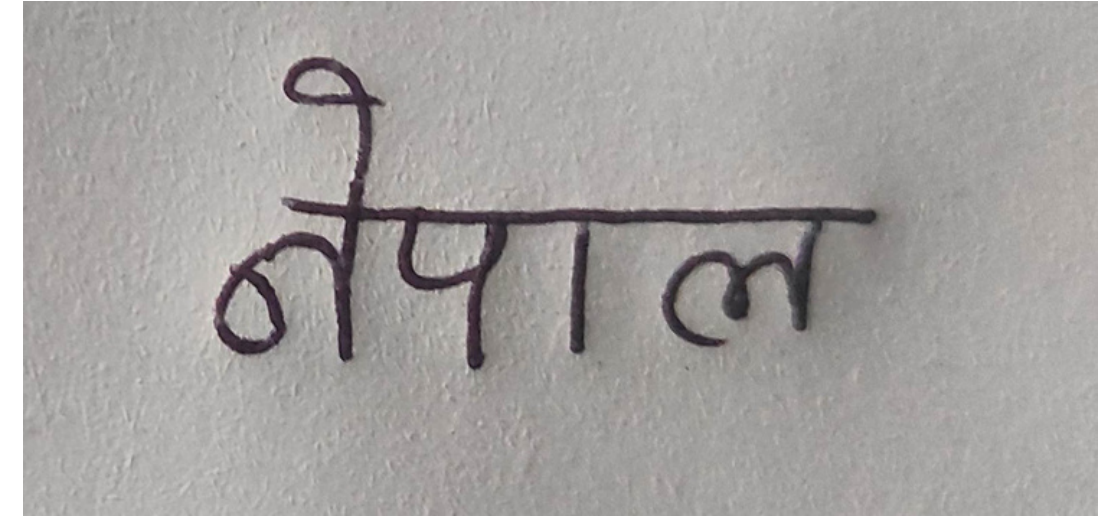 नेपाल